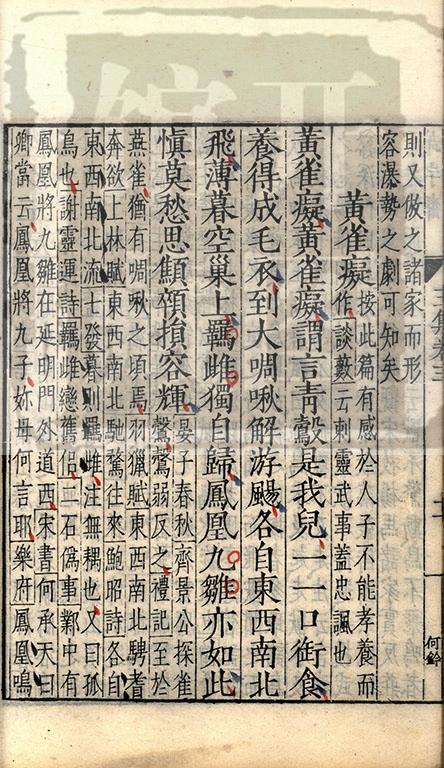 則又倣之諸家而形
容瀑勢之劇可知矣
黃雀癡按此篇有感於人子不能孝養而
作談藪云刺靈武事蓋忠諷也
黃雀癡黃雀癡謂言靑鷇是我兒一一口銜食
養得成毛衣到大啁啾解游颺各自東西南北
飛薄暮空巢上羈雌獨自歸鳳凰九雛亦如此
愼莫愁思顦顇損容輝晏子春秋齊景公探雀
鷇鷇弱反之禮記至於
燕雀猶有啁啾之頃焉羽獵賦東西南北騁耆
奔欲上林賦東西南北馳騖往來鮑昭詩各自
東西南北流七發暮則羈雌注無耦也又曰孤
鳥也謝靈運詩羈雌戀舊侶二石僞事鄴中有
鳳凰將九雛在延明門外道西宋書何承天曰
卿當云鳳凰將九子妳母何言耶樂府鳳凰鳴
何鈐